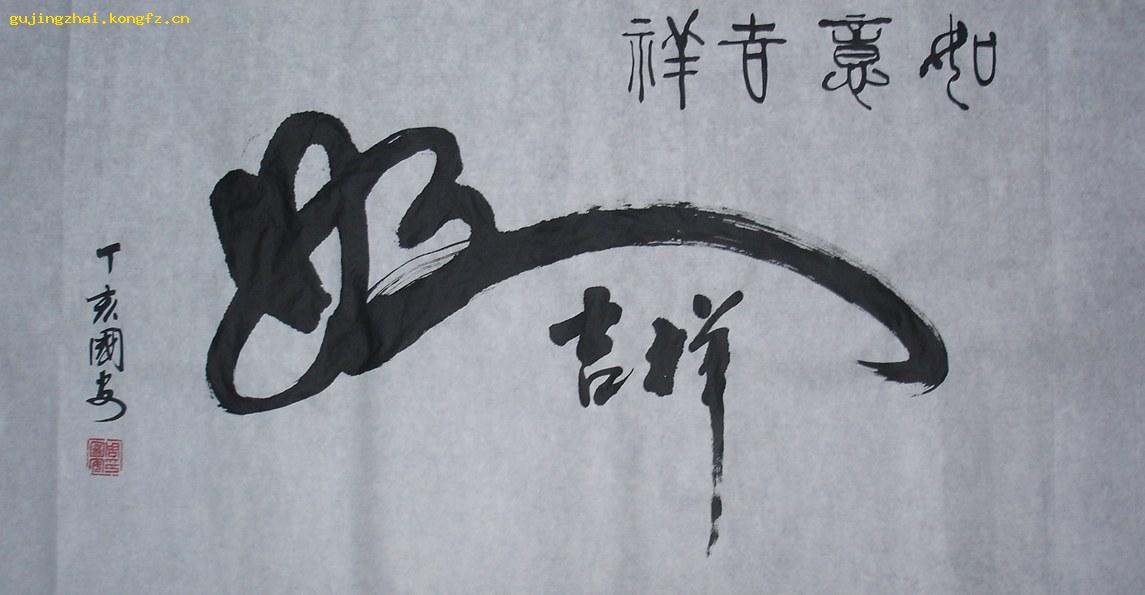 gujingzhai.kongfz.cn
如意吉祥
如
吉祥
丁亥國安